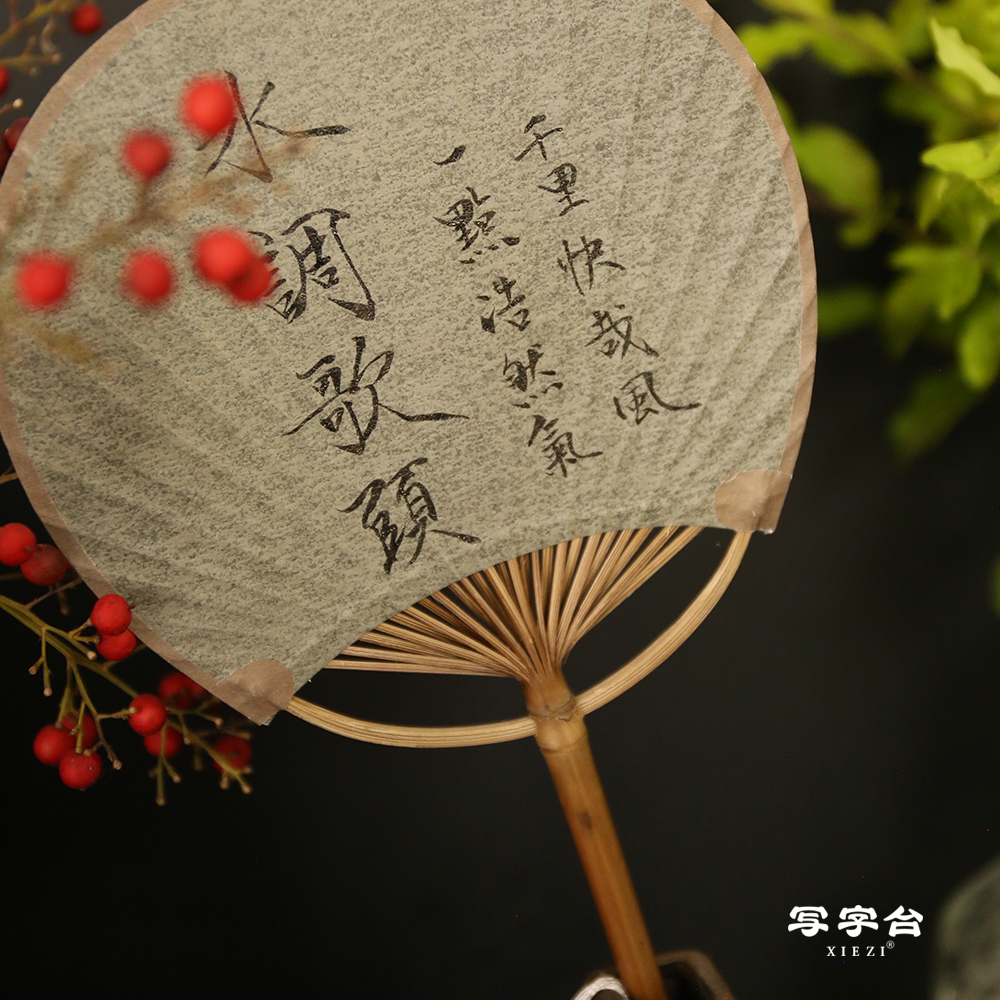 千里快哉風
一點浩然氣
水調歌頭
写字台
XIEZI®